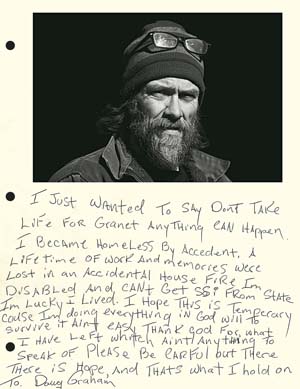 I Just Wanted To Say Dont Take
Life For Granet Anything CAN Happen.
I Became HomeLess By Accedent, A
Lifetime of Work And memories were
Lost in an Accidental House Fire Im
DisAbled And, CANt Get SSI From State
Im Lucky I Lived. I Hope THIS is Temperary
Cause Im doing everything in God will To
survive it Aint easy Thank God For, what
I Have Left Which Aint Anything To
Speak of Please Be CArFul but There
There is Hope, and THATs what I hold on
To. Doug Graham